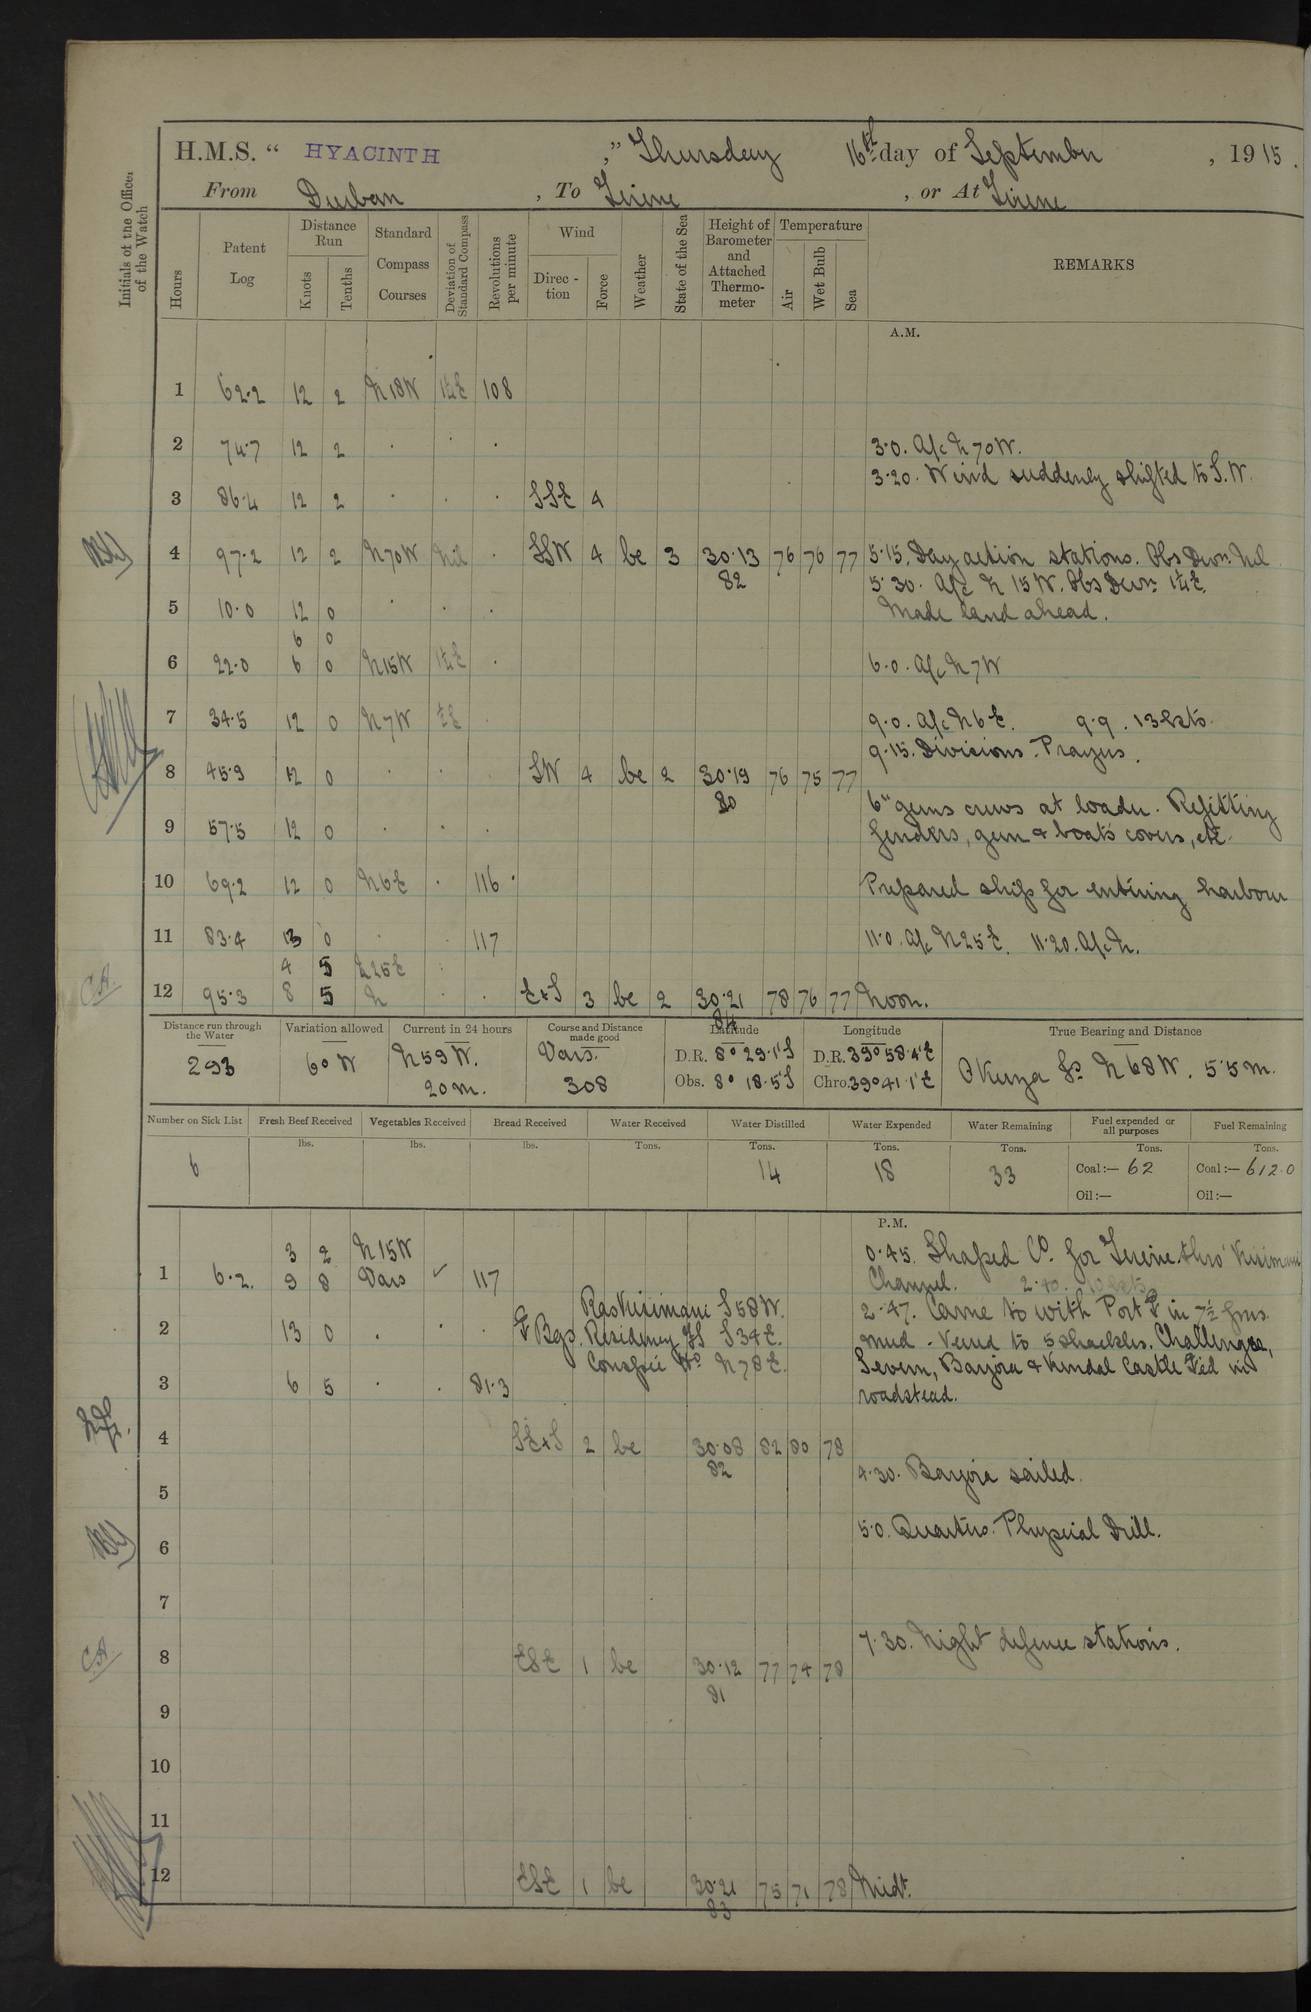 H.M.S. “ HYACINTH ,” Thursday 16th day of September , 1915.
From Durban , To Tirene , or At Tirene
Initials of the Officer of the Watch
Hours
Patent Log
Distance Run
Knots
Tenths
Standard Compass Courses
Deviation of Standard Compass
Revolutions per minute
Wind
Direc-tion
Force
Weather
State of the Sea
Height of Barometer and Attached Thermo-meter
Temperature
Air
Wet Bulb
Sea
REMARKS
A.M.
1 62.2 12 2 N18W 1¼E 108
2 74.7 12 2 . . .
3.0. A/c N70W.
3.20. Wind suddenly shifted to S.W.
3 86.4 12 2 . . . SSE 4
4 97.2 12 2 N70W Nil . SSW 4 bc 3 30.13 76 76 77 5.15. Day action stations. Obs Devn. Nil
82 5.30. A/c N 15W. Obs Devn. 1¼E.
5 10.0 12 0 . . . Made land ahead.
6 0
6 22.0 6 0 N15W 1¼E . 6.0. A/c N7W
7 34.5 12 0 N7W ½E . 9.0. A/c N6E. 9.9. 13 kts.
9.15. Divisions. Prayers.
8 45.9 12 0 . . SW 4 bc 2 30.19 76 75 77
80
6" guns crews at loader. Refitting
9 57.5 12 0 . . . fenders, gun & boats covers, etc.
10 69.2 12 0 N6E . 116 Prepared ship for entering harbour
11 83.4 13 0 . . 117 11.0. A/c N25E. 11.20. A/c N.
4 5 N25E
12 95.3 8 5 N . . ExS 3 bc 2 30.21 78 76 77 Noon.
84
Distance run through the Water
293
Variation allowed
6° W
Current in 24 hours
N59W.
20m.
Course and Distance made good
Vars.
308
Latitude
D.R. 8° 29.1'S
Obs. 8° 18.5'S
Longitude
D.R. 39° 58.4'E
Chro. 39° 41.1'E
True Bearing and Distance
Okuza Id. N68W. 5.5m.
Number on Sick List
6
Fresh Beef Received
lbs.
Vegetables Received
lbs.
Bread Received
lbs.
Water Received
Tons.
Water Distilled
Tons.
14
Water Expended
Tons.
18
Water Remaining
Tons.
33
Fuel expended or all purposes
Tons.
Coal:— 62
Oil:—
Fuel Remaining
Tons.
Coal:— 612.0
Oil:—
P.M.
3 2 N15W 0.45. Shaped Co. for Tirene thro' Kisimani
1 6.2. 9 8 Vars ✓ 117 Channel. 2.40. 10 kts
Ras Kisimani S58W. 2.47. Came to with Port in 7½ fms.
2 13 0 . . . Bgs. Residency FS S34E. mud. Veered to 5 shackles. Challenger,
Conspic Ho N78E. Severn, Barjora & Kendal Castle in
3 6 5 . . 81.3 roadstead.
4 SExS 2 bc 30.08 82 80 78
82 4.30. Barjora sailed.
5
5.0. Quarters. Physical Drill.
6
7
7.30. Night defence stations.
8 ESE 1 bc 30.12 77 74 78
81
9
10
11
12 ESE 1 bc 30.21 75 71 78 Midt.
83